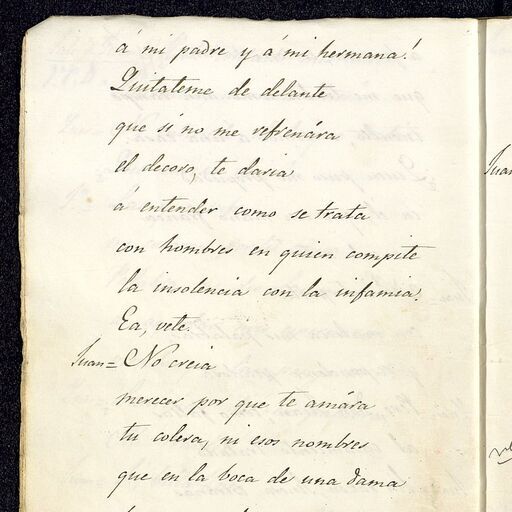 á mi padre y á mi hermana!
Quitateme de delante
que si no me refrenára
el decoro, te daria
á entender como se trata
con hombres en quien compite
la insolencia con la infamia.
Ea, vete.
Juan= No creia
merecer por que te amára
tu colera, ni esos nombres
que en la boca de una dama
Juan